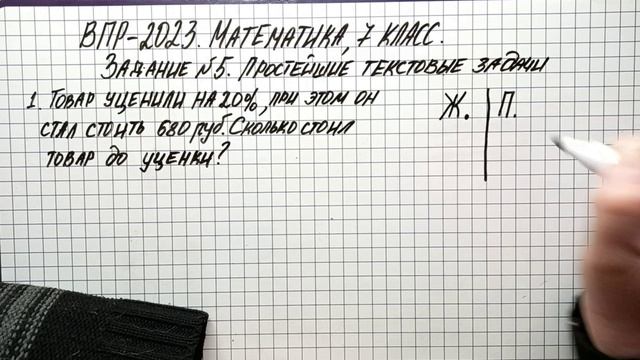 ВПР-2023. МАТЕМАТИКА, 7 КЛАСС.
ЗАДАНИЕ №5. ПРОСТЕЙШИЕ ТЕКСТОВЫЕ ЗАДАЧИ
1. ТОВАР УЦЕНИЛИ НА 20%, ПРИ ЭТОМ ОН
СТАЛ СТОИТЬ 680 РУБ. СКОЛЬКО СТОИЛ
ТОВАР ДО УЦЕНКИ?
Ж. П.